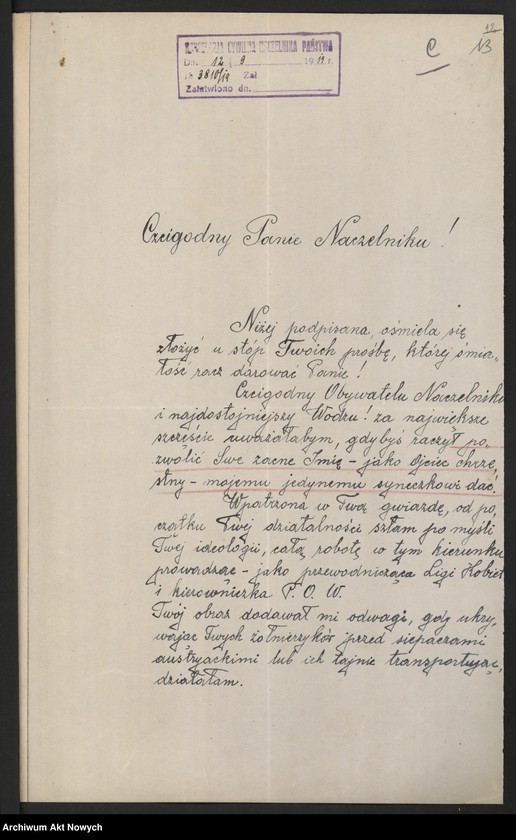 12
13
C
KANCELARJA CYWILNA NACZELNIKA PAŃSTWA
Dn. 12 / 9 1919 r.
№ 3810/19 Zał
Załatwiono dn.
Czcigodny Panie Naczelniku!
Niżej podpisana, ośmiela się
złożyć u stóp Twoich prośbę, której śmia-
łość racz darować Panie!
Czcigodny Obywatelu Naczelniku
i najdostojniejszy Wodzu! za największe
szczęście uważałabym, gdybyś raczył po,
zwolić Swe zacne Imię - jako Ojciec chrze,
stny - mojemu jedynemu syneczkowi dać.
Wpatrzona w Twą gwiazdę, od po,
czątku Twej działalności szłam po myśli
Twej ideologii, całą robotę w tym kierunku
prowadząc - jako przewodnicząca Ligi Kobiet
i kierowniczka P. O. W.
Twój obraz dodawał mi odwagi, gdy ukry,
wając Twych żołnierzyków przed siepaczami
austryackimi lub ich tajnie transportując,
działałam.
Archiwum Akt Nowych